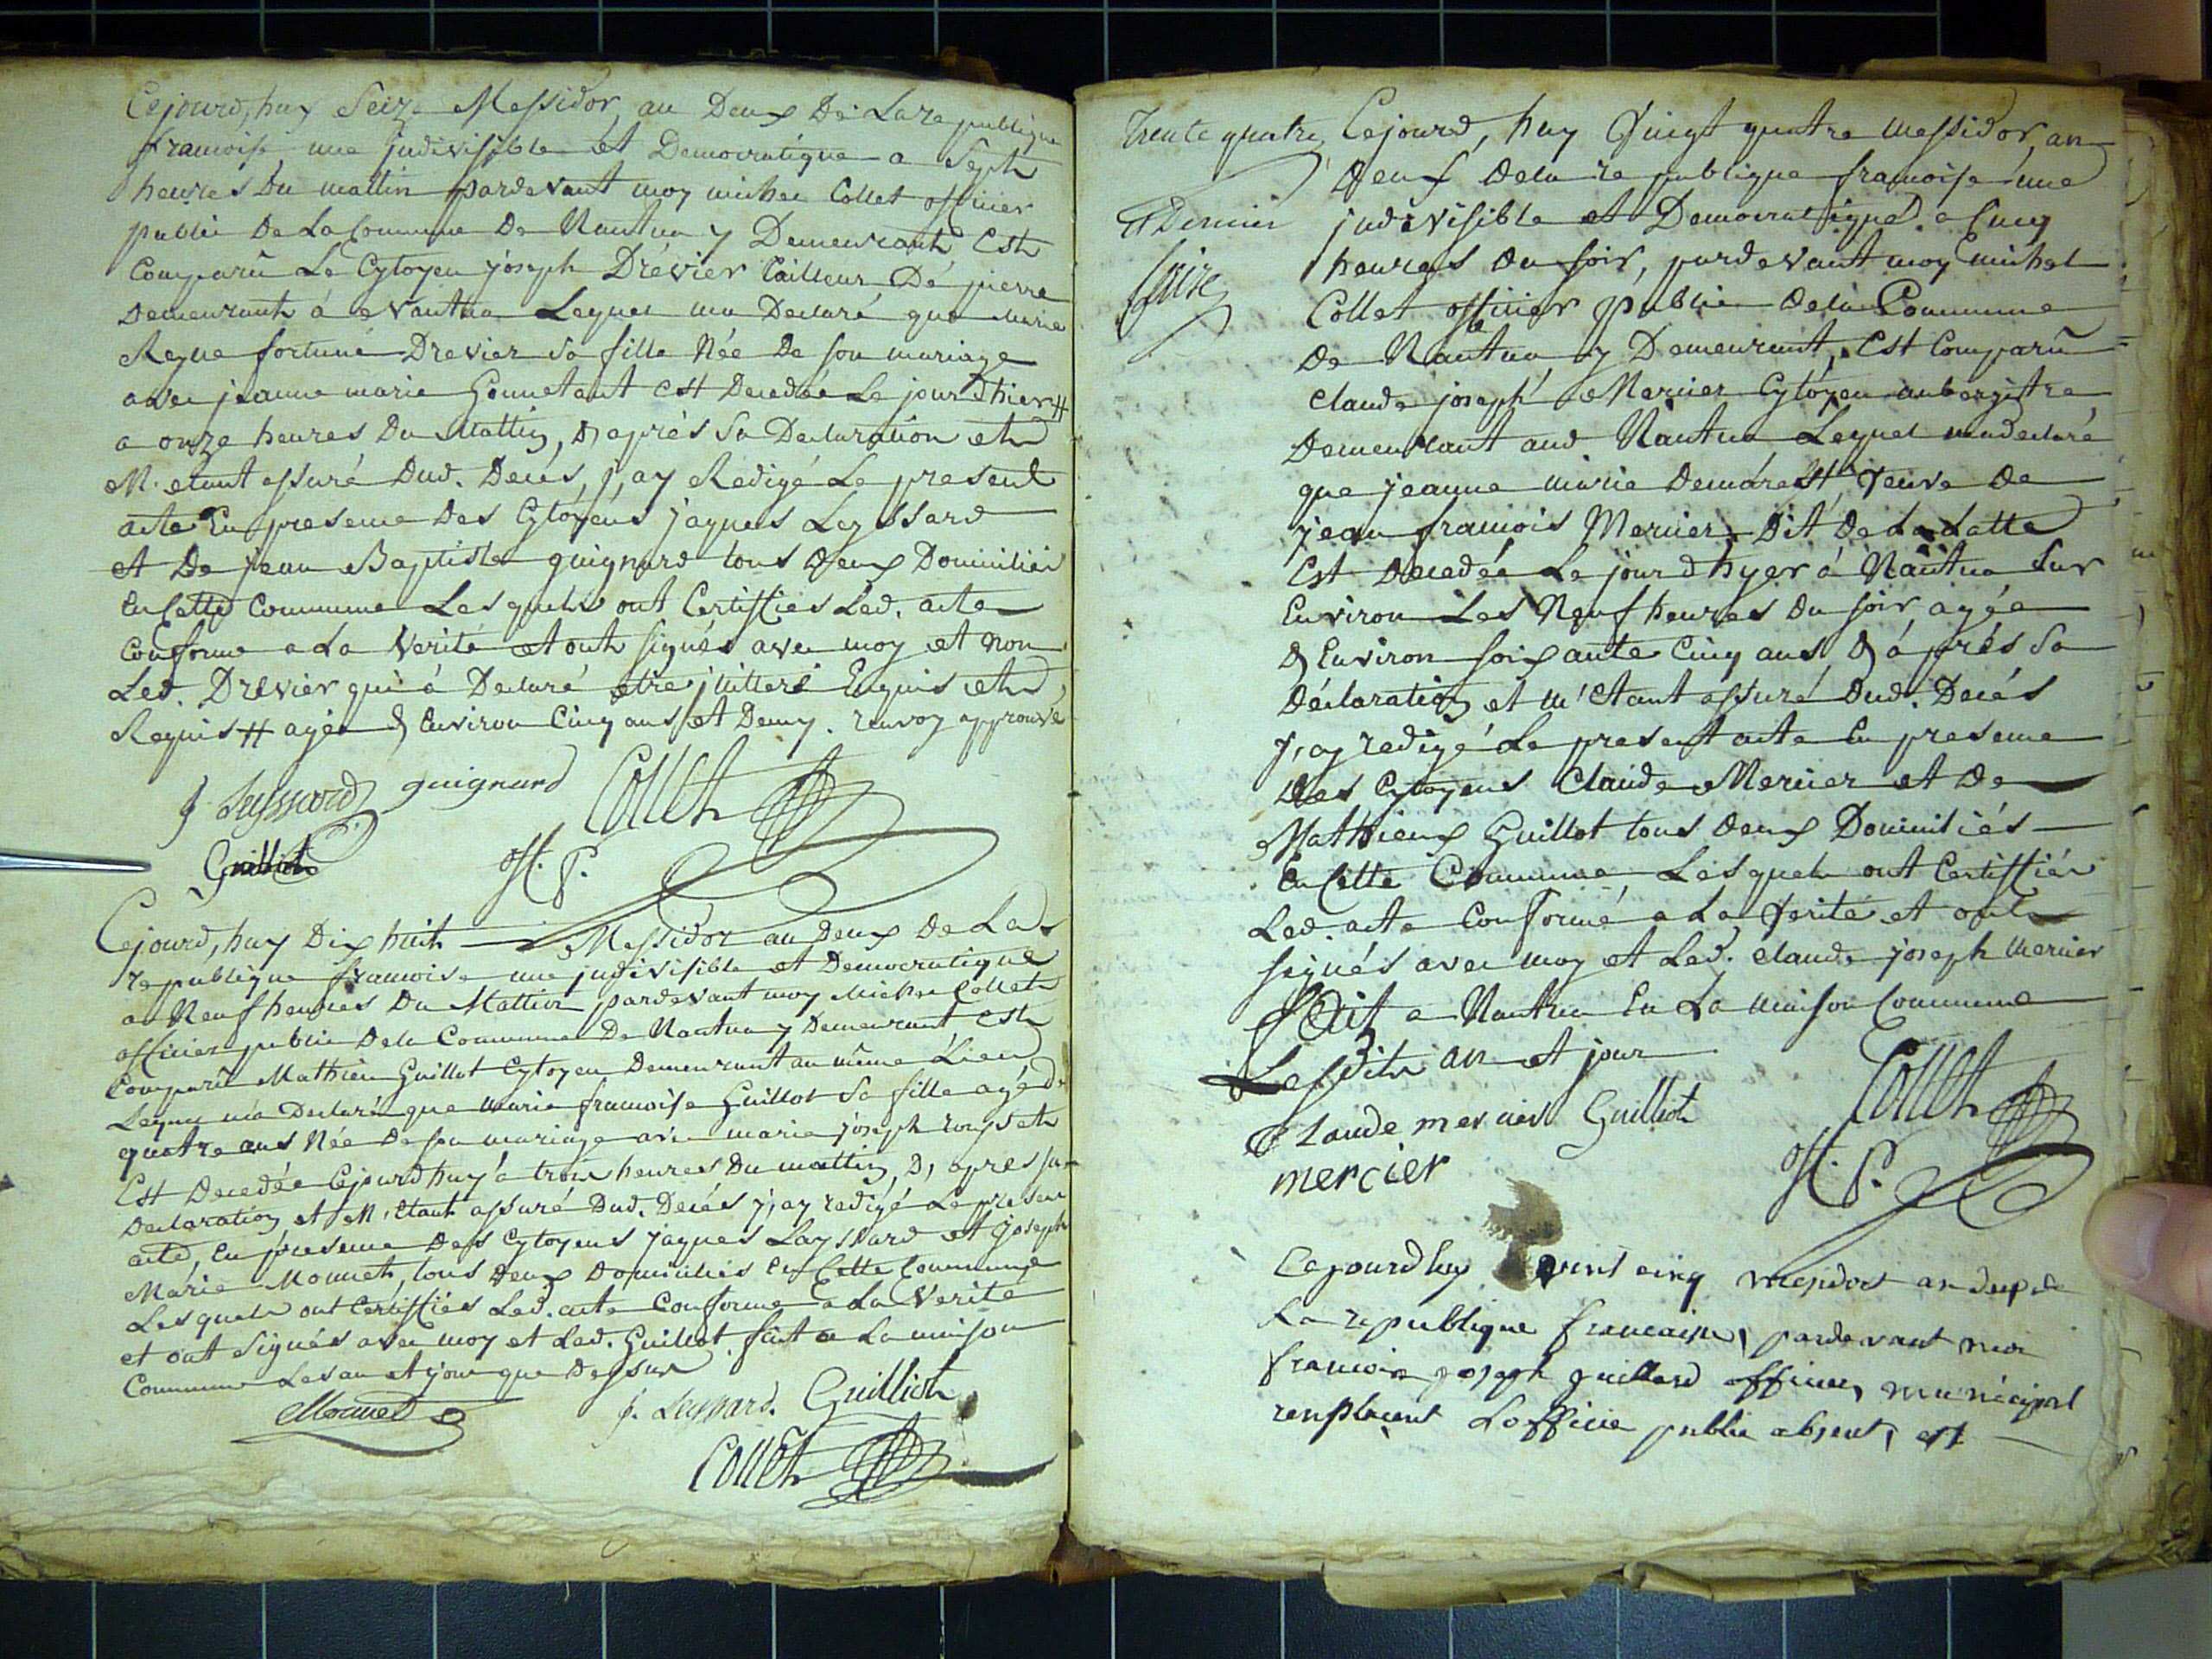 Cejourd,huy Seize Messidor an Deux De La republique
francoise une judivisible et Democratique a Sepht
heures Du mattin pardevant moy michel Collet officier
public De La Commune De Nantua y Demeurant, Est
Comparû Le Cytoyen joseph Drévier tailleur Dé pierre
Demeurant á Nantua Lequel ma Declaré que marie
Reyne fortuné Drevier Sa fille Née De son mariage
avec jeanne marie Gonnetant est Decedée Le jour dhier #
a onze heures Du Mattin, D, aprés Sa Declaration et
M. etant assuré Dud. Decés, j, ay Redigé Le present
acte En presence Des Cytoyens jaques Leyssard
et De jean Baptiste guignard tous Deux Domicilies
en Cette Commune Lesquels ont Certiffies Led. acte
Conforme a La Verité et ont signés avec moy et non
Led. Drevier qui á Declaré etre jllitteré Enquis et
Requis # agée D, Environ Cinq ans et Demy. renvoy approuvé
J Leyssard guignard Collet
Guilliot off. P.
Cejourd, huy Dix huit Messidor an Deux De La
republique francoise une judivisible et Democratique
a Neuf heures Du Mattin pardevant moy Michel Collet
officier public De la Commune De Nantua y Demeurant, est
Comparû Mathieu Guillot Cytoyen Demeurant au même Lieu
Lequel m'a Declaré que marie francoise Guillot Sa fille agé d.
quatre ans Née De son mariage avec marie joseph
Est Decedée Cejourdhuy á trois heures Du mattin, D, apres sa
Declaration et M, etant assuré Dud. Decés j, ay redigé Le present
acte, en presence Des Cytoyens jaques Layssard et joseph
Marie Monnet, tous Deux Domiciliés en Cette Commune
Lesquels ont Certiffiés Led. acte Conforme a La Verité
et ont signés avec moy et Led. Guillot. fait a La maison
Commune Les an et jour que Dessus
Monnet J. Leyssard. Guilliot
Collet
Trente quatre
Dernier
Cejourd, huy Vingt quatre messidor, an
Deux De la republique francoise une
judivisible et Democratique a Cinq
heures Du soir, pardevant moy michel
Collet officier public De la Commune
De Nantua y Demeurant, Est Comparû
Claude joseph Mercier Cytoyen aubergistre
Demeurant aud Nantua Lequel ma declaré
que jeanne marie Demarest Veuve De
jean francois Mercier Dit De La Latte
Est Decedée Le jour d hyer á Nantua Sur
Environ Les Neuf heures Du soir, agée
D, Environ soixante Cinq ans, D, aprés Sa
Déclaration et m'etant assuré Dud. Decés
j, ay redigé Le present acte En presence
Des Cytoyens Claude Mercier et De
Mathieux Guillot tous Deux Domiciliés
en Cette Commune Lesquels ont Certiffiés
Led. acte Conforme a La Verité et ont
signés avec moy et Led. Claude joseph mercier
fait a Nantua En La maison Commune
Lesdits an et jour
Claude mercier Guilliot Collet
mercier off. P.
Cejourdhuy vint cinq messidor an deux de
La republique francaise, pardevant moi
francois joseph guillard officier municipal
remplacent Lofficier public absent, est